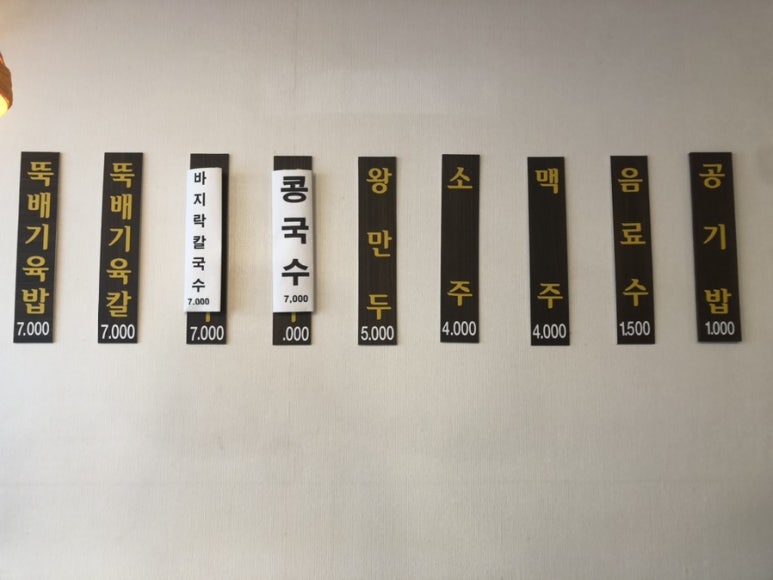 뚝배기육밥
7.000
뚝배기육칼
7.000
바지락칼국수
7.000
7.000
콩국수
7,000
.000
왕만두
5.000
소주
4.000
맥주
4.000
음료수
1.500
공기밥
1.000